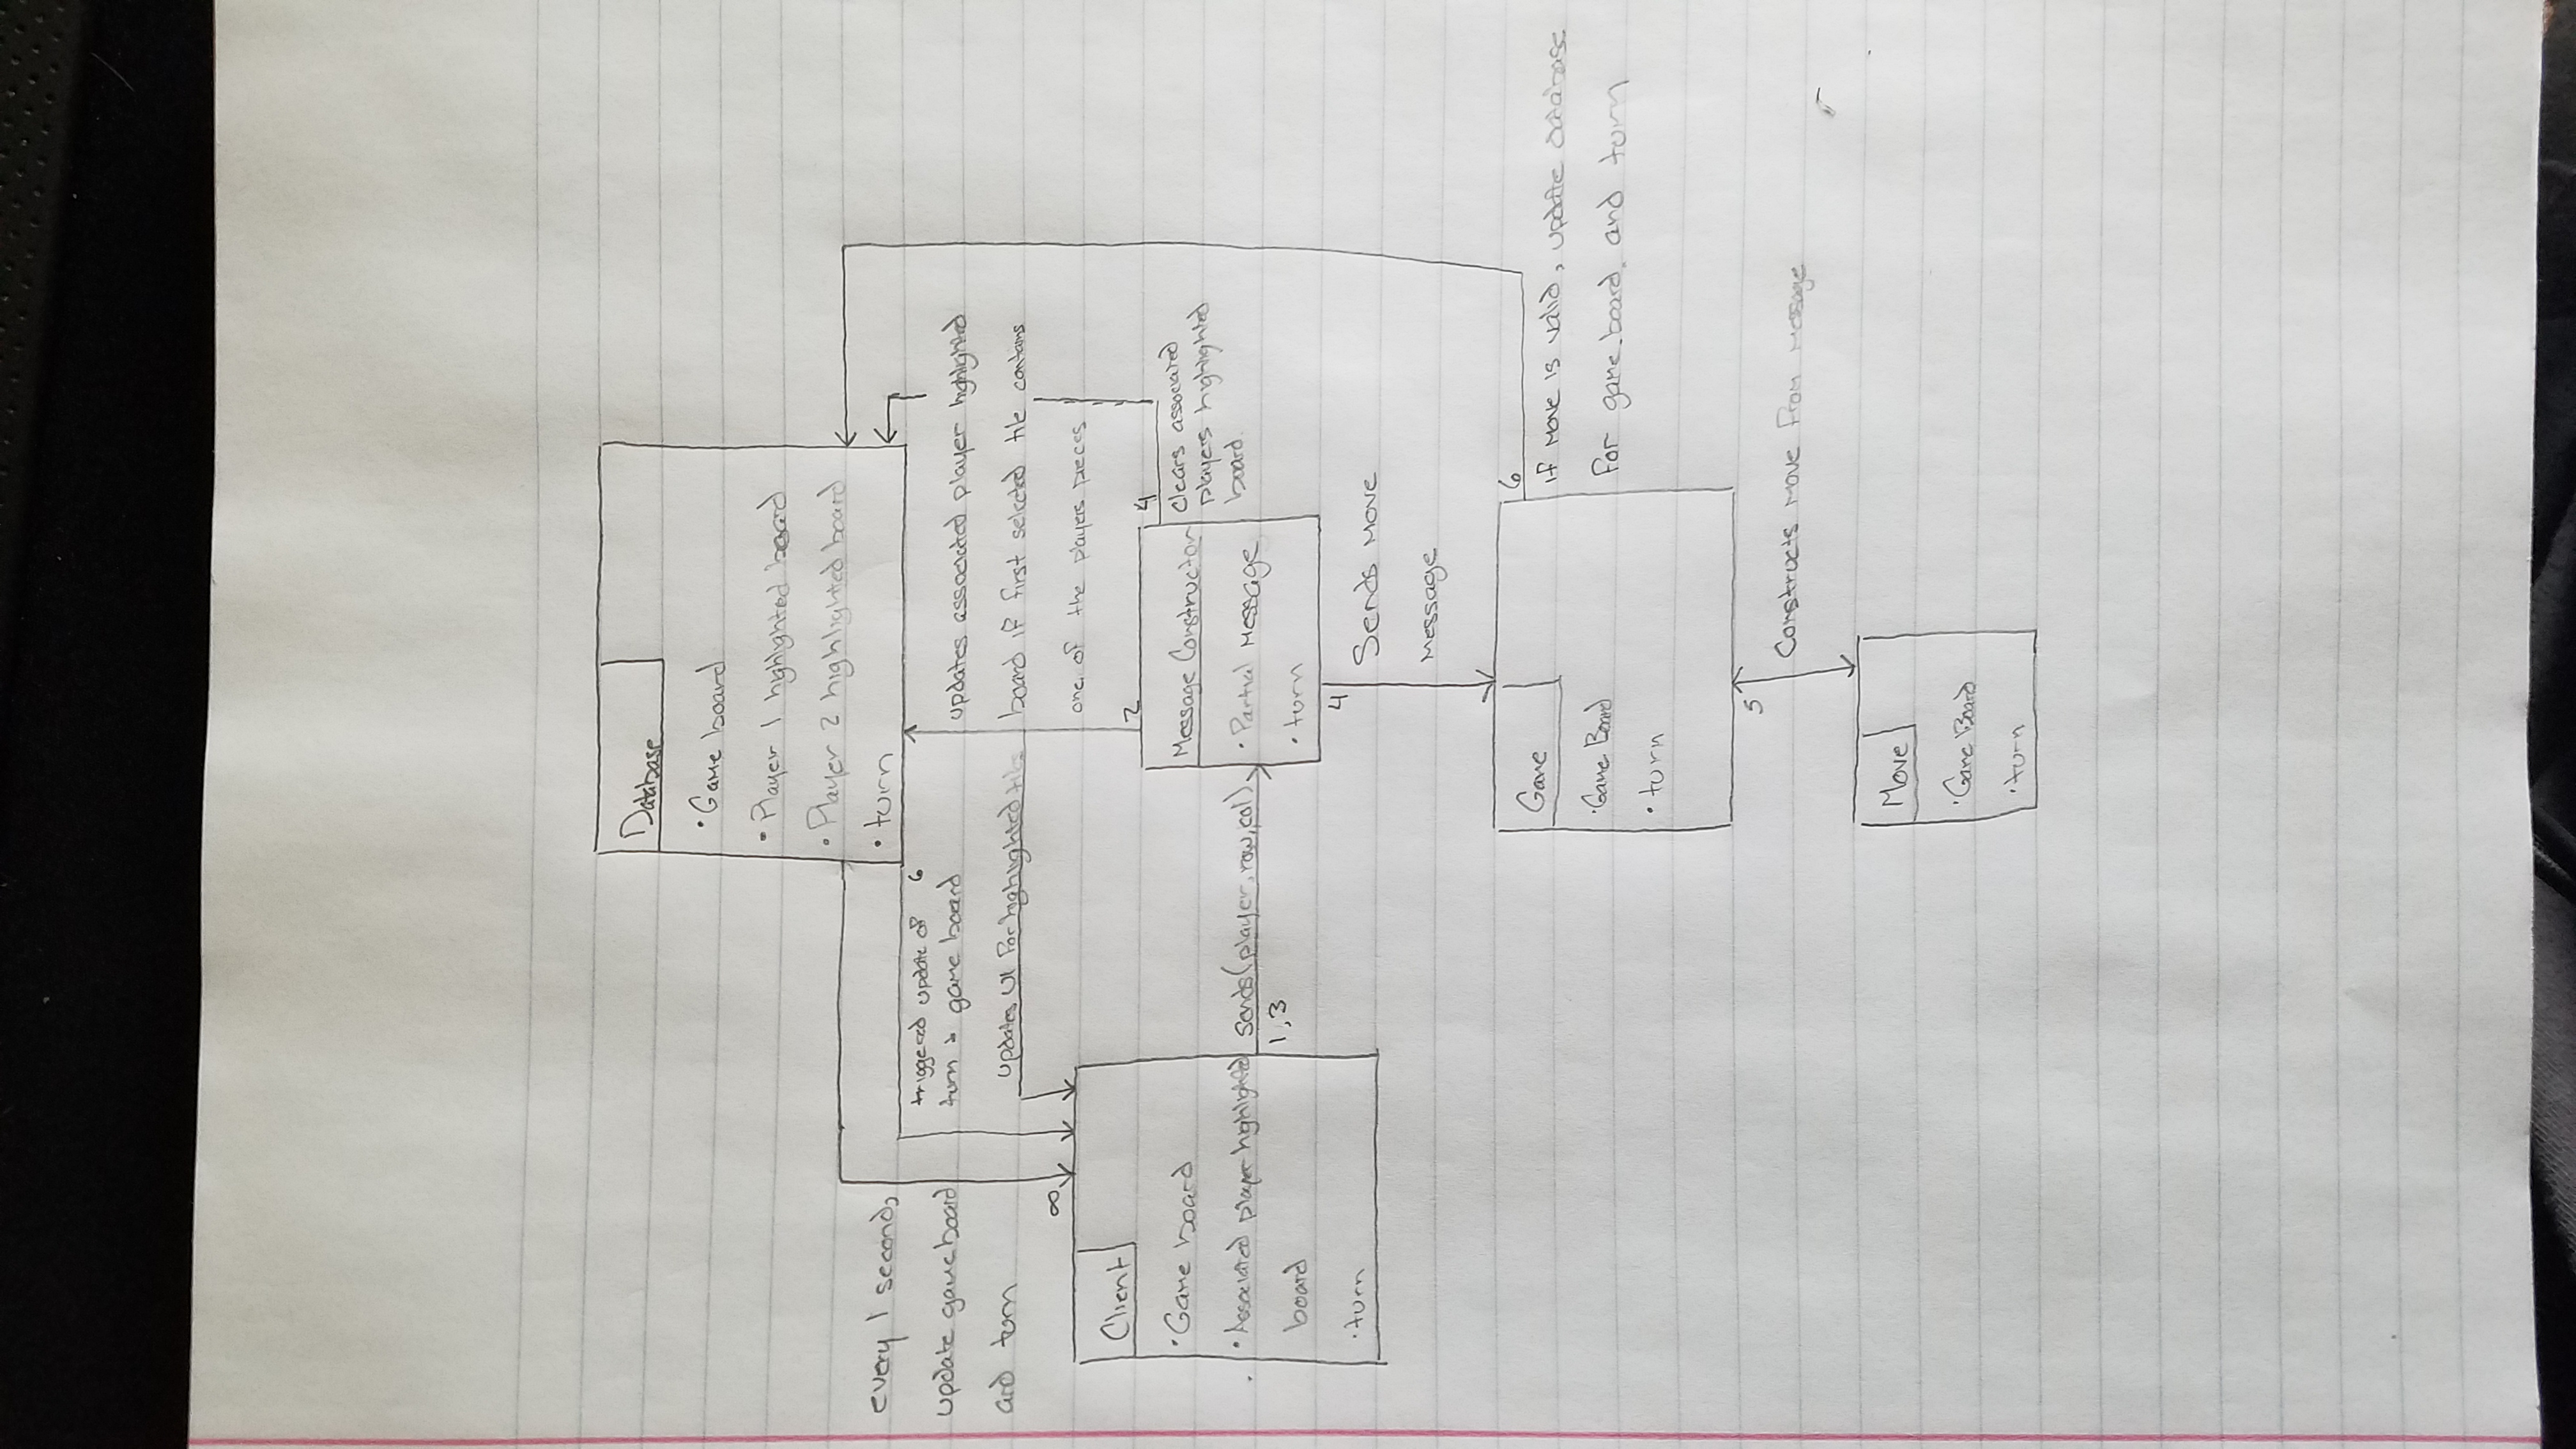 Database
• Game board
• Player 1 highlighted board
• Player 2 highlighted board
• turn
every 1 second,
update game board
and turn
triggered update of 6
turn & game board
updates UI for highlighted tiles
∞
updates associated player highlighted
board if first selected tile contains
one of the players pieces
2
4
clears associated
players highlighted
board.
Client
• Game board
• Associated player highlighted
board
• turn
sends(player, row, col)
1,3
Message Constructor
• Partial Message
• turn
4
Sends Move
Message
Game
• Game Board
• turn
6
if Move is valid, update database
for game board. and turn
5
Constructs move from message
Move
• Game Board
• turn